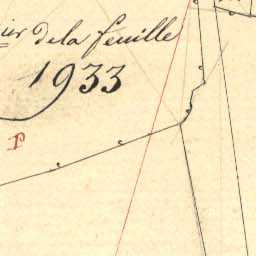 de la feuille
1933
P